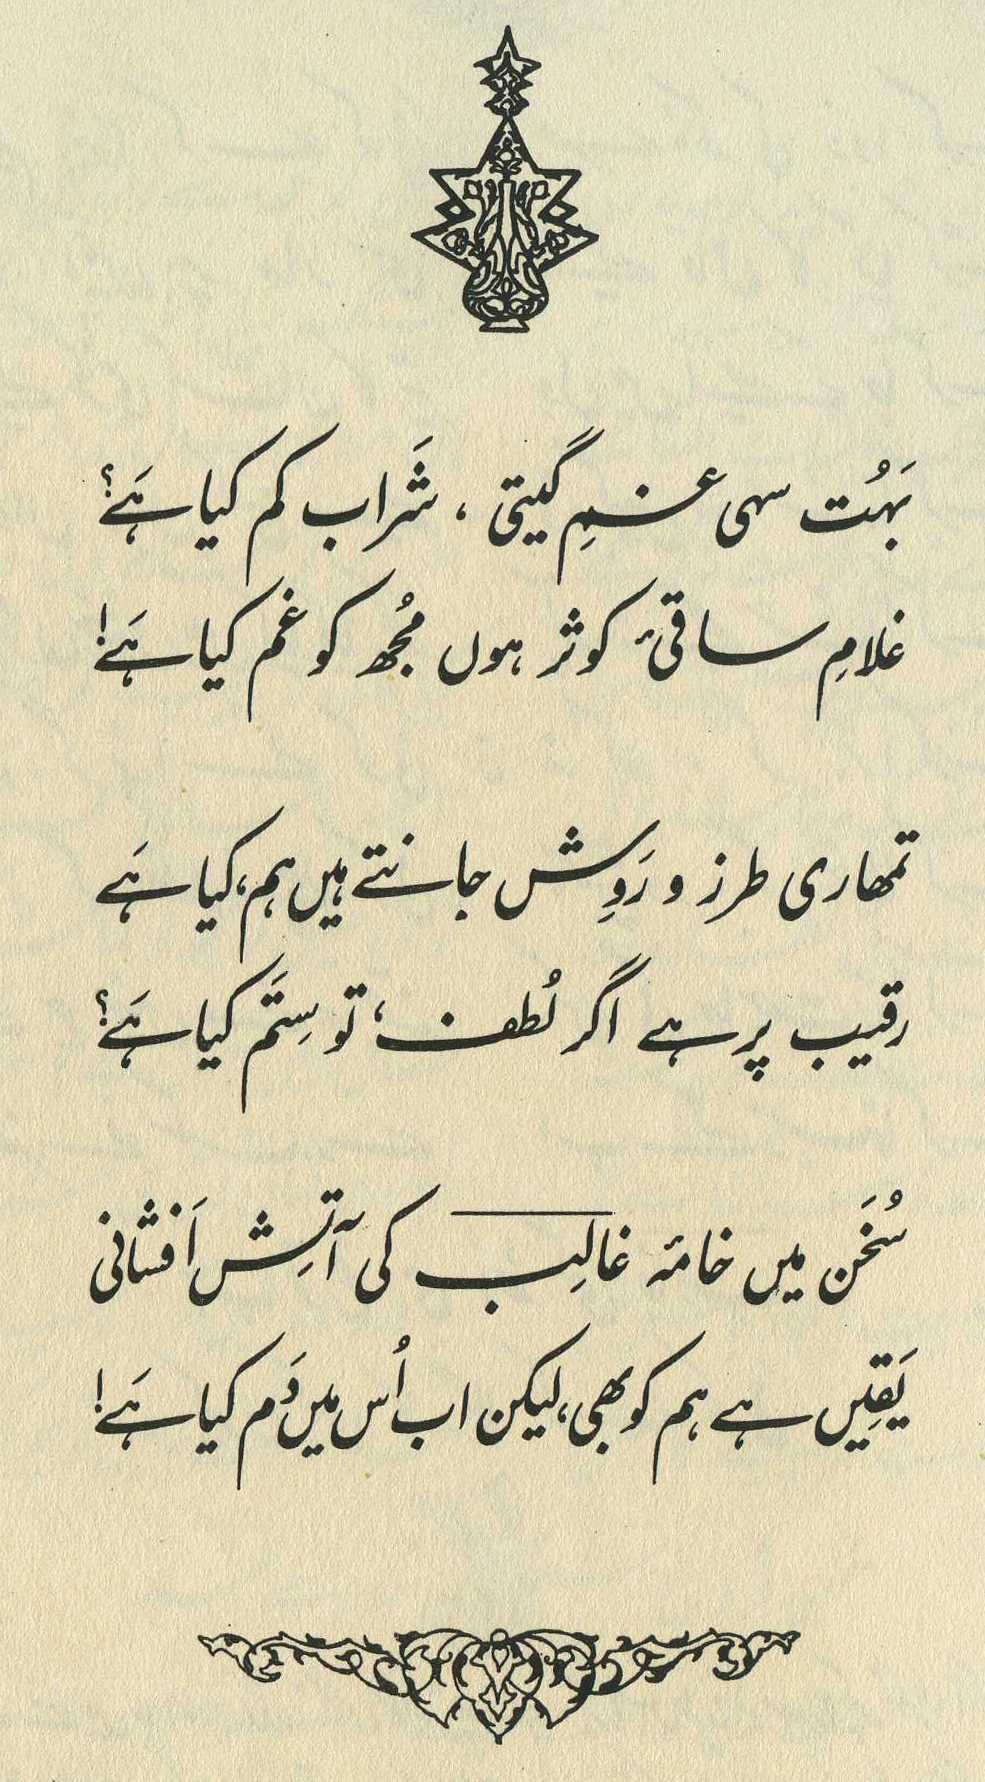 بَہُت سہی غمِ گیتی ، شَراب کم کیا ہَے؟
غلامِ ساقیٔ کوثر ہوں مُجھ کو غم کیا ہَے!
تمھاری طرز و رَوِش جانتے ہیں ہم، کیا ہَے
رقیب پر ہے اگر لُطف، تو سِتَم کیا ہَے؟
سُخَن میں خامۂ غالِب کی آتِش اَفشانی
یَقِیں ہے ہم کو بھی، لیکن اب اُس میں دَم کیا ہَے!